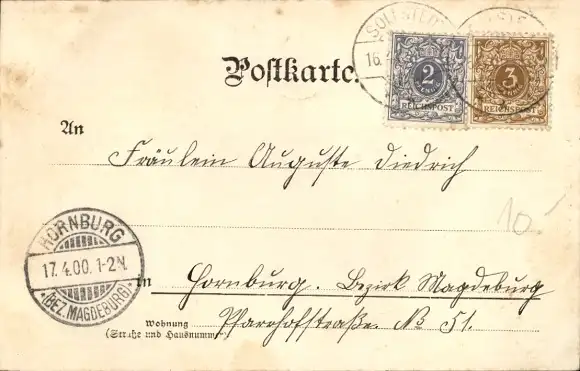 SOLLSTEDT
16.4
2
REICHSPOST
3
REICHSPOST
Postkarte.
An
Fräulein Auguste Diedrich
10.-
HORNBURG
17.4.00.1-2N.
* (BEZ. MAGDEBURG) *
in Hornburg. Bezirk Magdeburg
Wohnung
(Straße und Hausnummer)
Pfarrhofstraße. No 51.